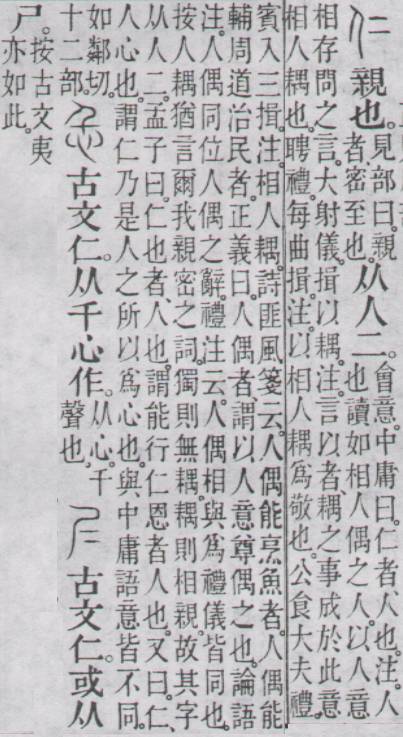 仁親也。見部曰。親者。密至也。从人二。會意。中庸曰。仁者、人也。注。人也讀如相人偶之人。以人意
相存問之言。大射儀。揖以耦。注。言以者、耦之事成於此意
相人耦也。聘禮。每曲揖。注。以相人耦爲敬也。公食大夫禮。
賓入三揖。注。相人耦。詩匪風箋云。人偶能烹魚者。人偶能
輔周道治民者。正義曰。人偶者、謂以人意尊偶之也。論語
注。人偶同位人偶之辭。禮注云。人偶相與爲禮儀皆同也。
按人耦猶言爾我親密之詞。獨則無耦。耦則相親。故其字
从人二。孟子曰。仁也者、人也。謂能行仁恩者人也。又曰。仁、
人心也。謂仁乃是人之所以爲心也。與中庸語意皆不同。
如鄰切。十二部。忎古文仁。从千心作。从心。千聲也。𡰥古文仁。或从
尸。按古文夷亦如此。